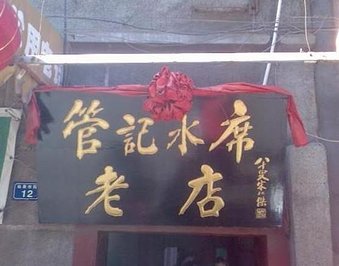 管記水席
老店
12